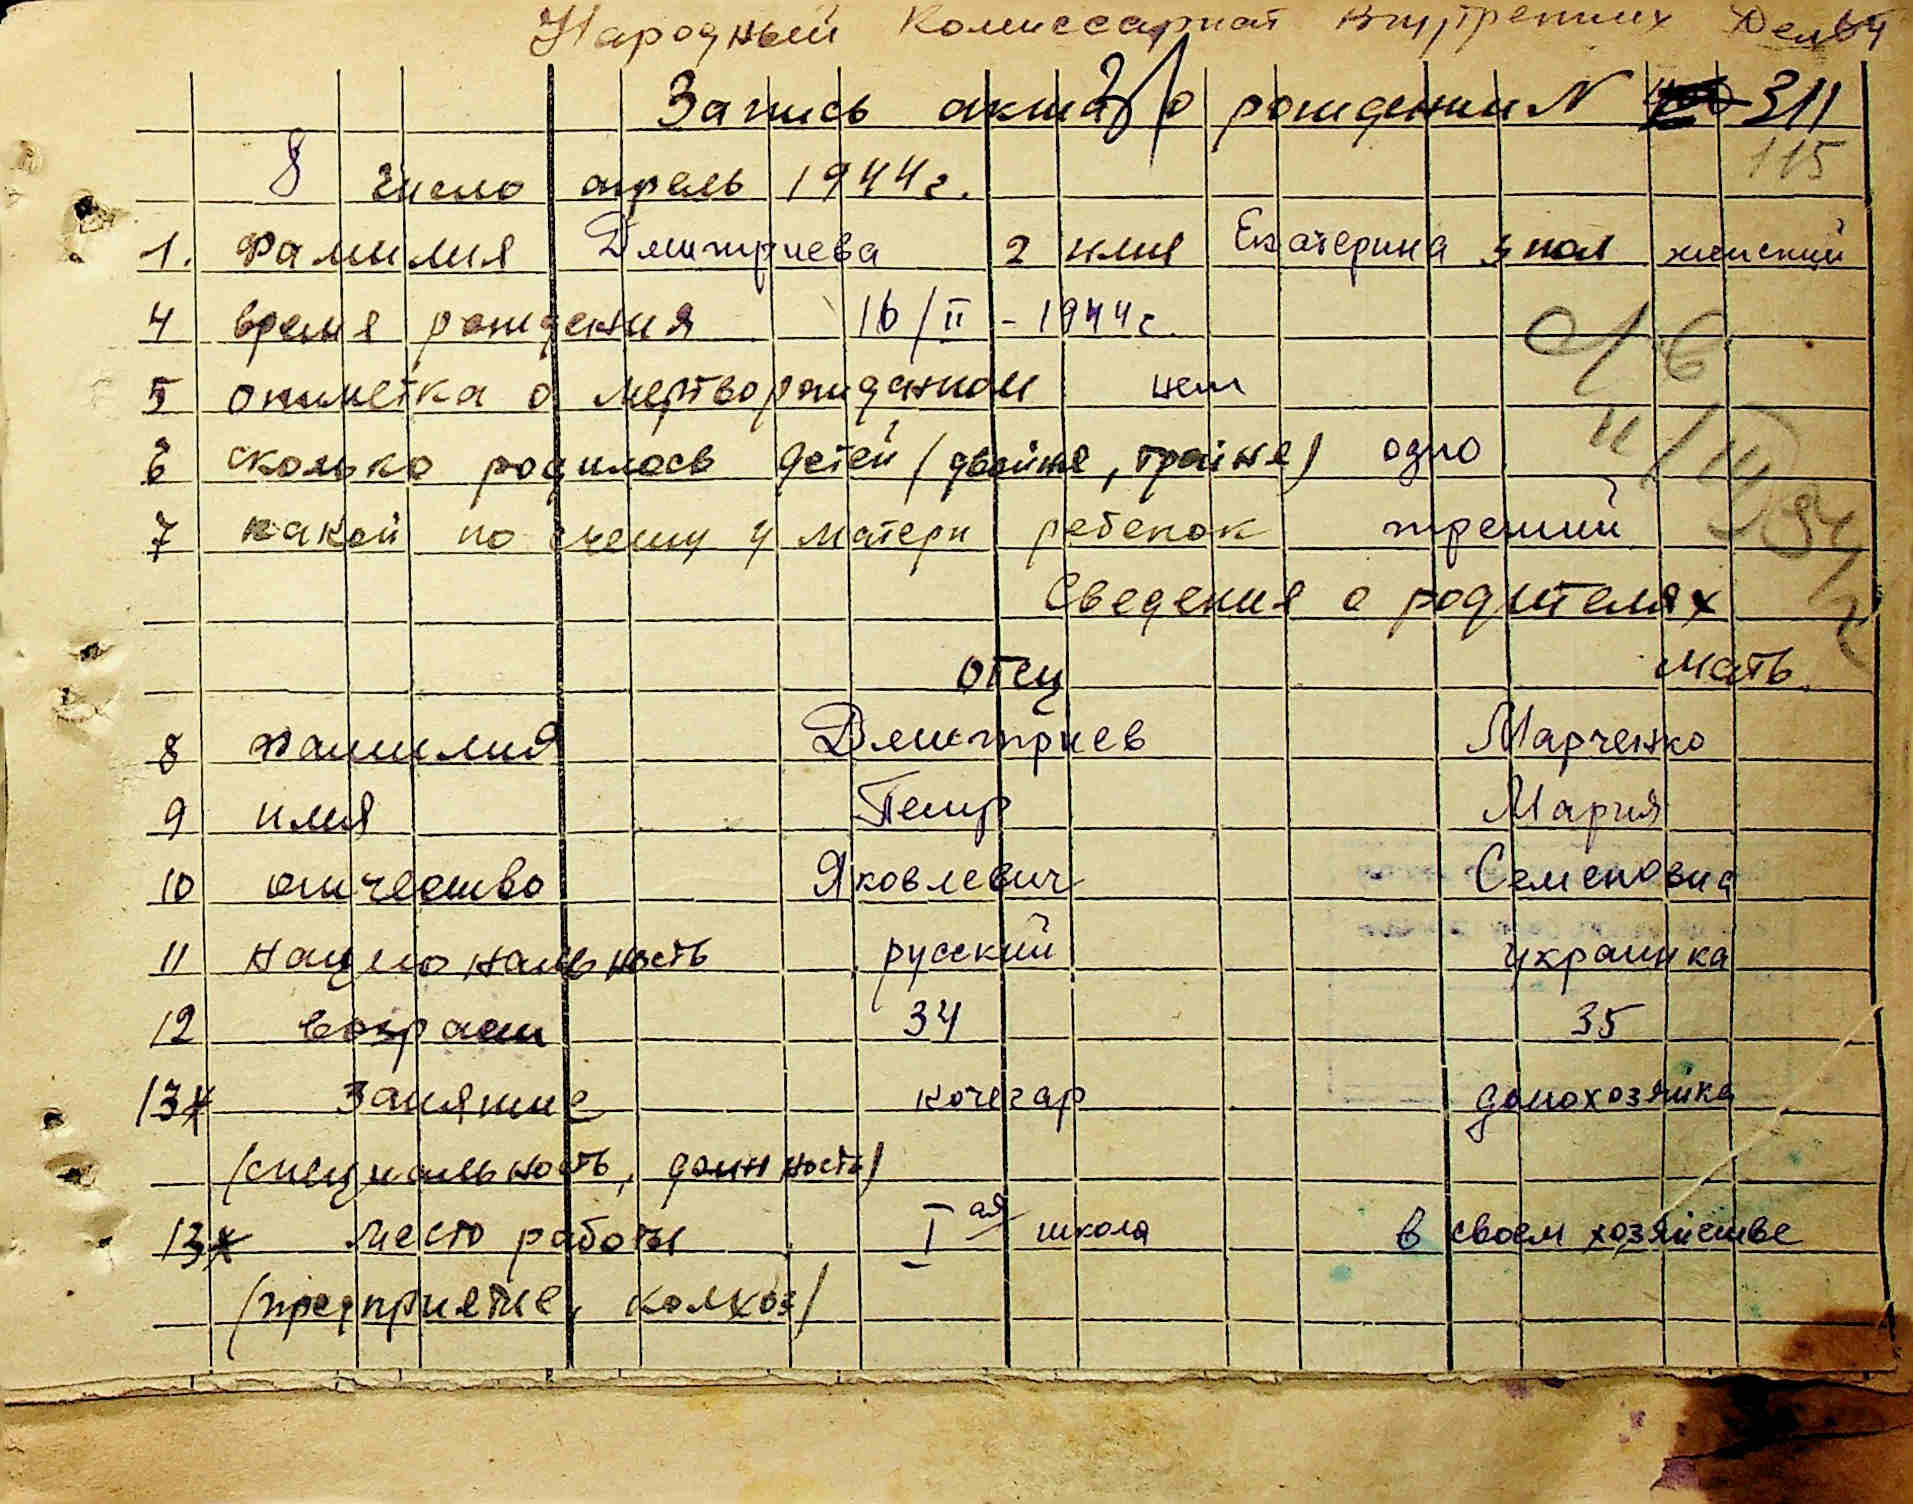 Народный Комиссариат Внутренних Дел
Запись акта о рождении N 311
115
8 число апрель 1944 г.
1. Фамилия Дмитриева 2 имя Екатерина 3 пол женский
4 время рождения 16/II - 1944 г.
5 отметка о мертворожданом нет
6 сколько родилось детей (двойня, тройня) одно
7 какой по счету у матери ребенок третий
Сведения о родителях
отец мать
8 Фамилия Дмитриев Марченко
9 имя Петр Мария
10 отчество Яковлевич Семеновна
11 национальность русский украинка
12 возраст 34 35
13 Занятие кочегар домохозяйка
(специальность, должность)
13 Место работы I ая школа в своем хозяйстве
(предприятие, колхоз)